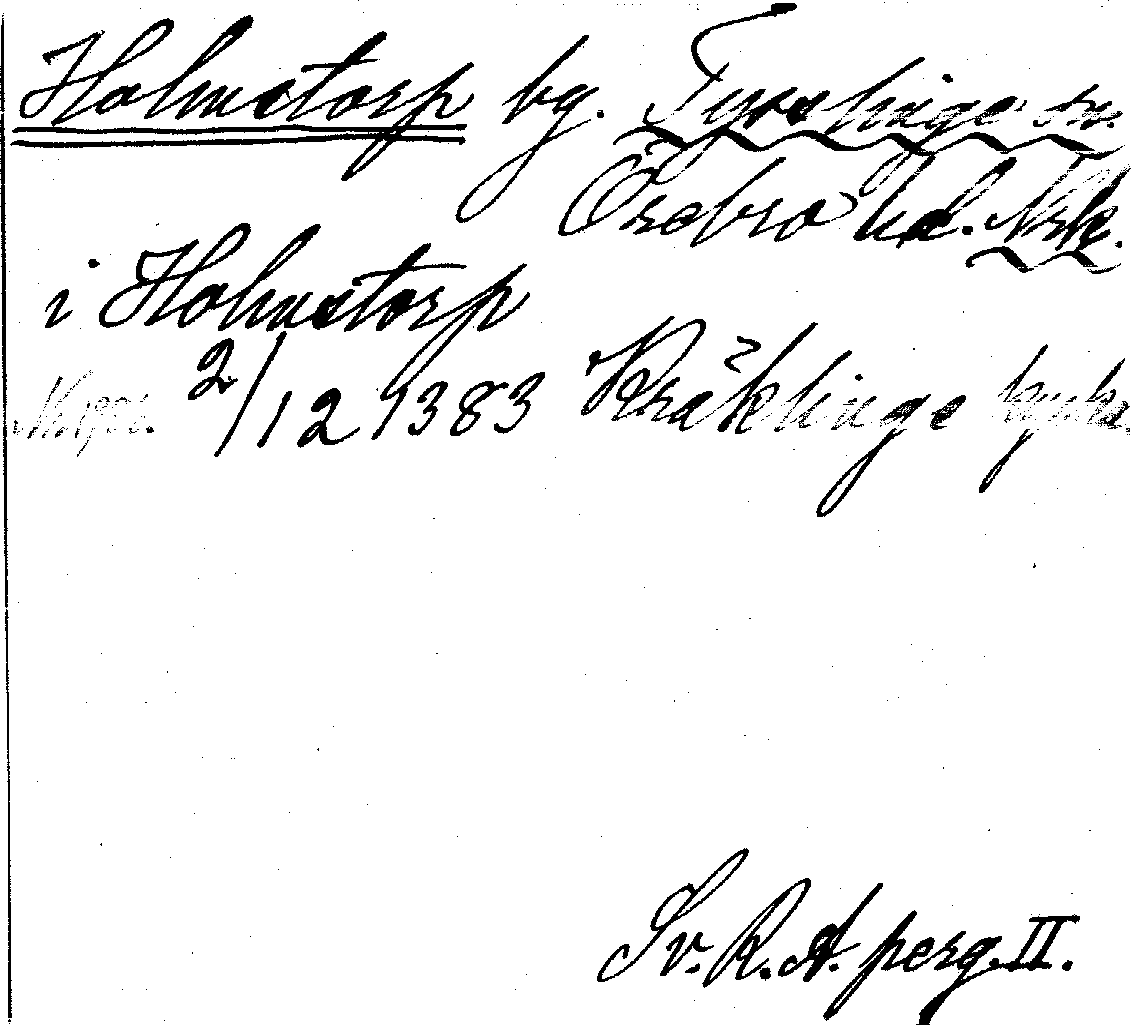 Holmstorp bg. Tysslinge sn.
Örebro hd. Nrk.
i Holmstorp
2/12 1383 Kräklinge kyrka.
Sv. R. A. perg. II.